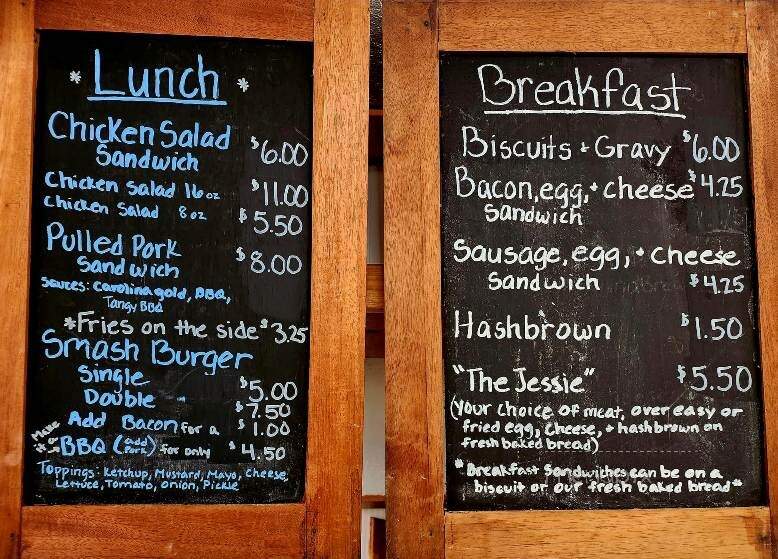 * Lunch *
Chicken Salad
Sandwich $6.00
Chicken Salad 16oz $11.00
Chicken Salad 8oz $5.50
Pulled Pork
Sandwich $8.00
Sauces: Carolina gold, BBQ,
Tangy BBQ
*Fries on the side $3.25
Smash Burger
Single $5.00
Double $7.50
Add Bacon for a $1.00
Make it a BBQ (add Pork) for only $4.50
Toppings: Ketchup, Mustard, Mayo, Cheese,
Lettuce, Tomato, Onion, Pickle
Breakfast
Biscuits + Gravy $6.00
Bacon, egg, + cheese $4.25
Sandwich
Sausage, egg, + cheese
Sandwich $4.25
Hashbrown $1.50
"The Jessie" $5.50
(Your choice of meat, over easy or
fried egg, cheese, + hashbrown on
fresh baked bread)
*Breakfast Sandwiches can be on a
biscuit or our fresh baked bread*